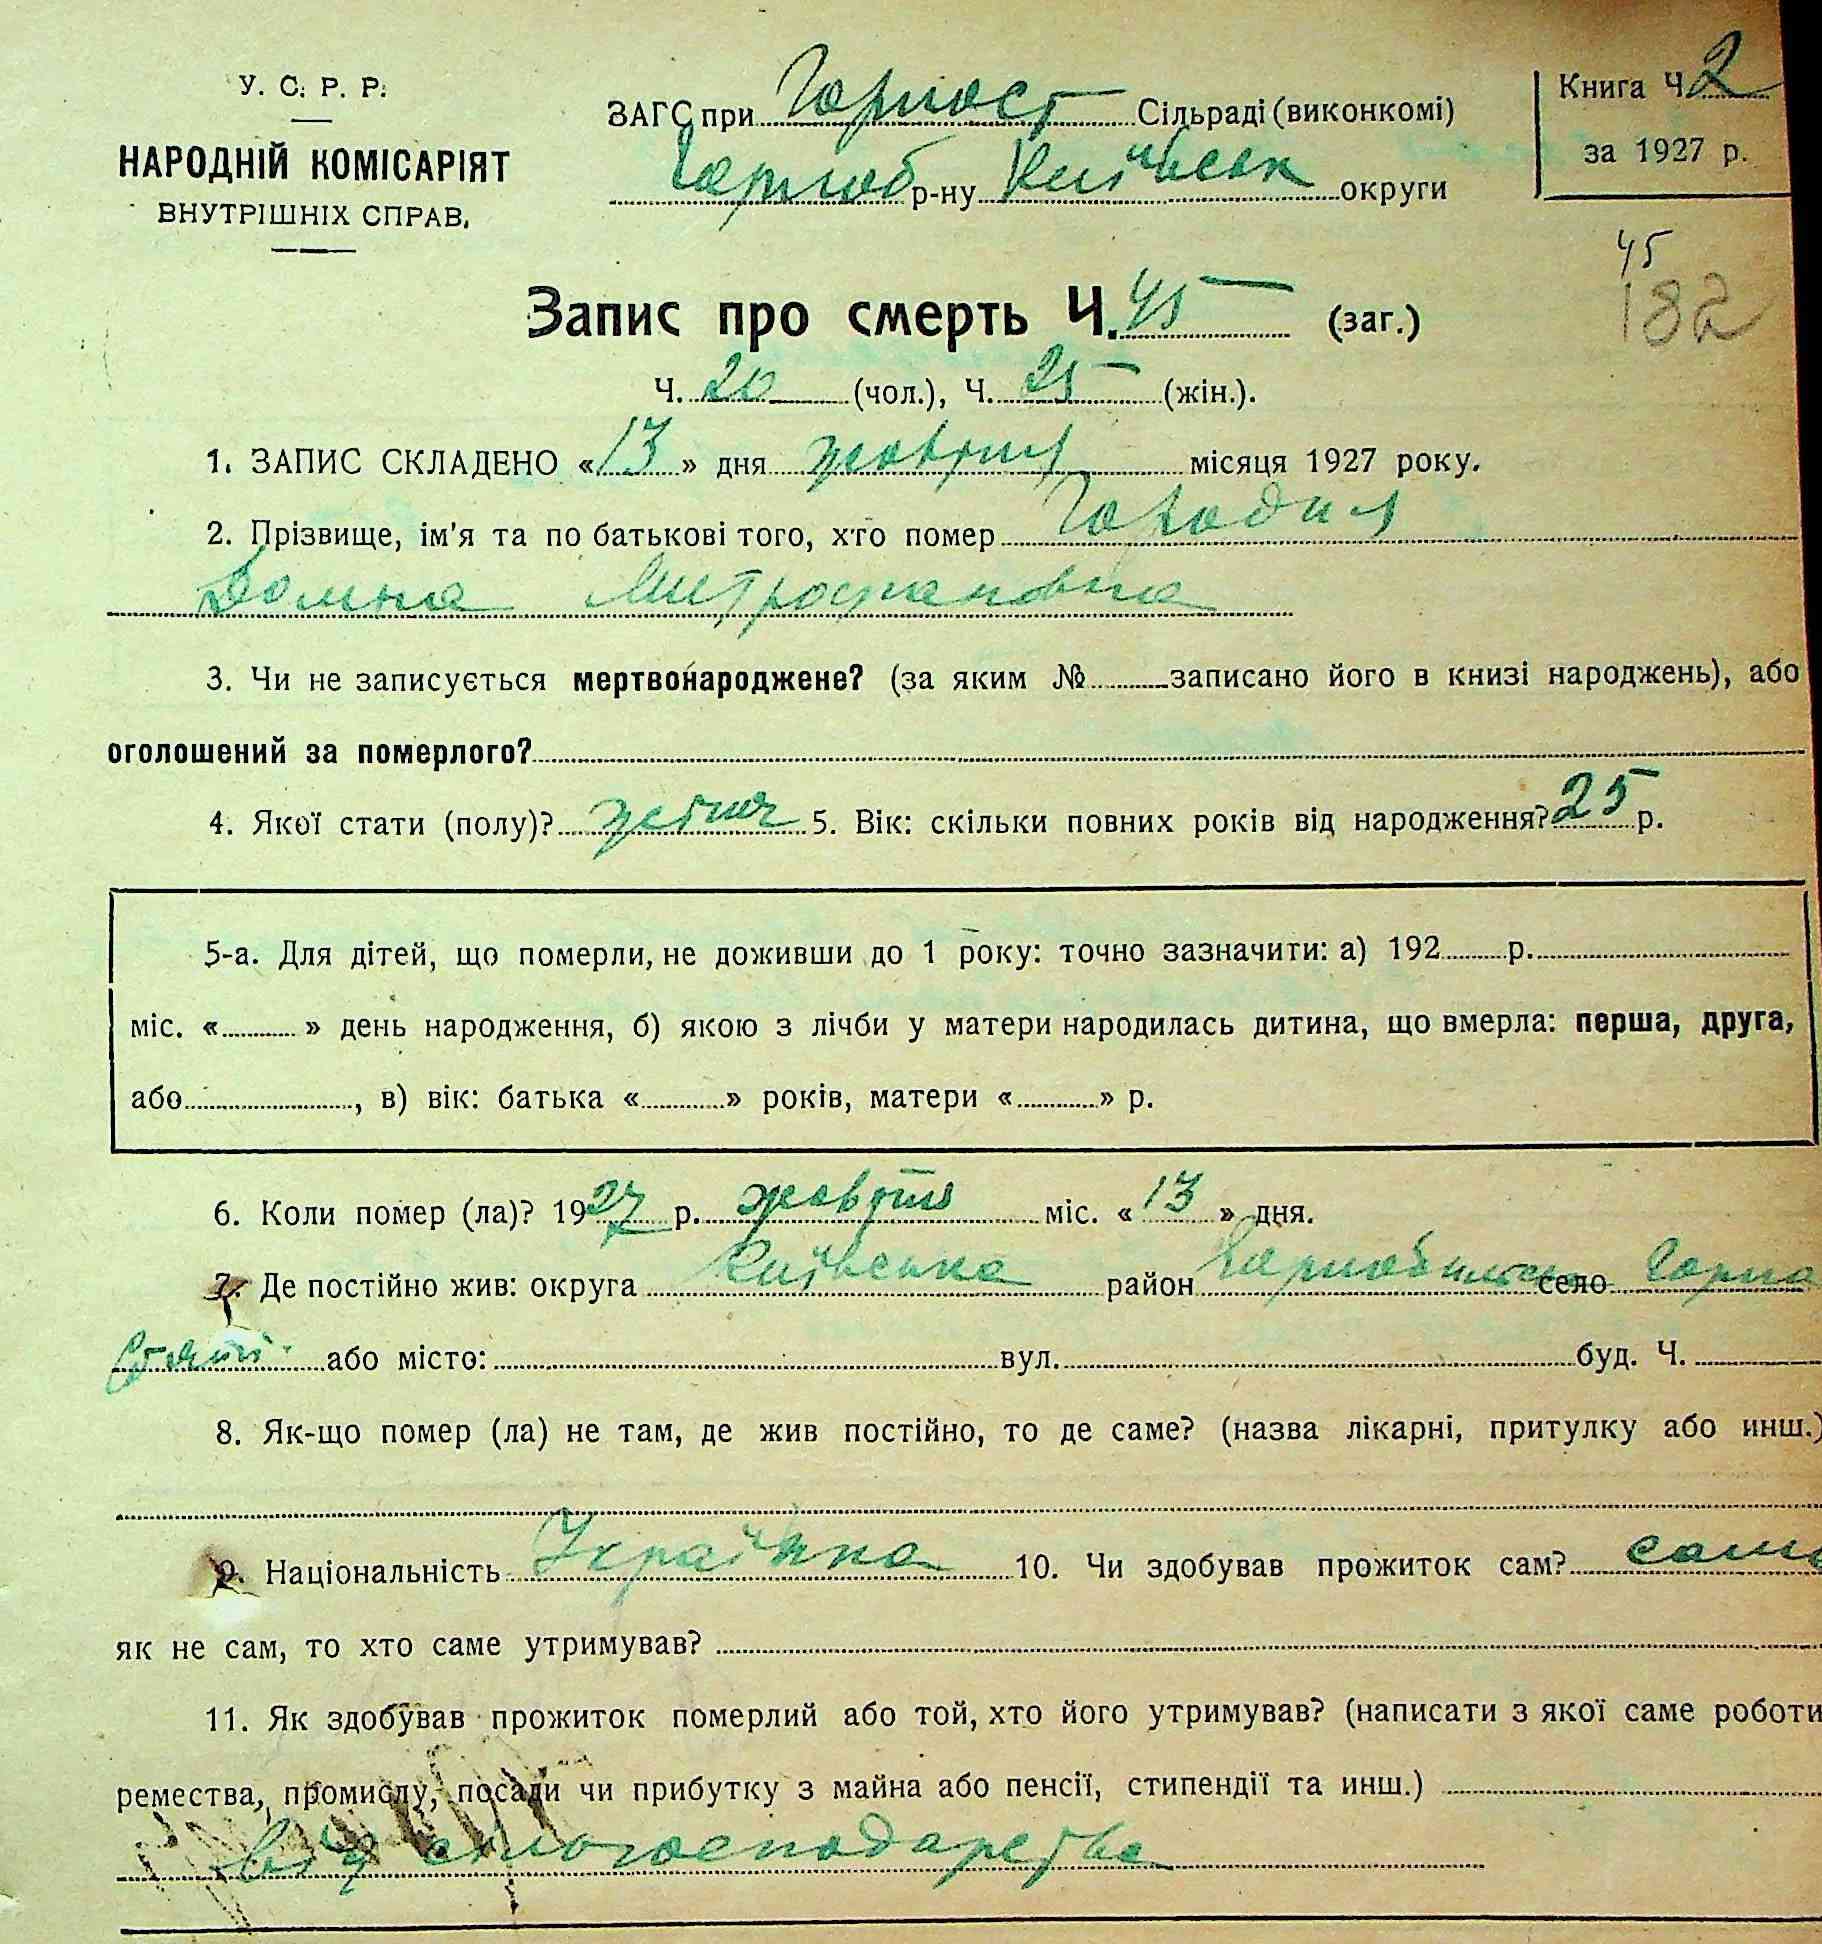 У. С. Р. Р.
НАРОДНІЙ КОМІСАРІЯТ
ВНУТРІШНІХ СПРАВ.
ЗАГС при Горност Сільраді (виконкомі)
р-ну Київськ округи
Книга Ч. 2
за 1927 р.
45
182
Запис про смерть Ч. 45 (заг.)
Ч. 20 (чол.), Ч. 25 (жін.).
1. ЗАПИС СКЛАДЕНО «13» дня жовтня місяця 1927 року.
2. Прізвище, ім'я та по батькові того, хто помер
Домна Митрофановна
3. Чи не записується мертвонароджене? (за яким № записано його в книзі народжень), або
оголошений за померлого?
4. Якої стати (полу)? 5. Вік: скільки повних років від народження? 25 р.
5-а. Для дітей, що померли, не доживши до 1 року: точно зазначити: а) 192 р.
міс. « » день народження, б) якою з лічби у матери народилась дитина, що вмерла: перша, друга,
або , в) вік: батька « » років, матери « » р.
6. Коли помер (ла)? 1927 р. жовтня міс. «13» дня.
7. Де постійно жив: округа Київська район село Горно
або місто: вул. буд. Ч.
8. Як-що помер (ла) не там, де жив постійно, то де саме? (назва лікарні, притулку або инш.)
9. Національність Українка 10. Чи здобував прожиток сам? сама
як не сам, то хто саме утримував?
11. Як здобував прожиток померлий або той, хто його утримував? (написати з якої саме роботи
ремества, промислу, посади чи прибутку з майна або пенсії, стипендії та инш.)
від сільгосподарства